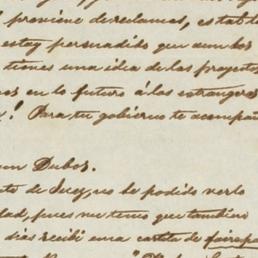 proviene de reclamos, es tal d
estoy persuadido que aun los
tienes una idea de los proyecto
en lo futuro á los estrangeros
! Para tu gobierno te acompañ
Dubos.
to de Jecy, no he podido verlo
dad, pues me temo que tambien
dias recibi una cartita de